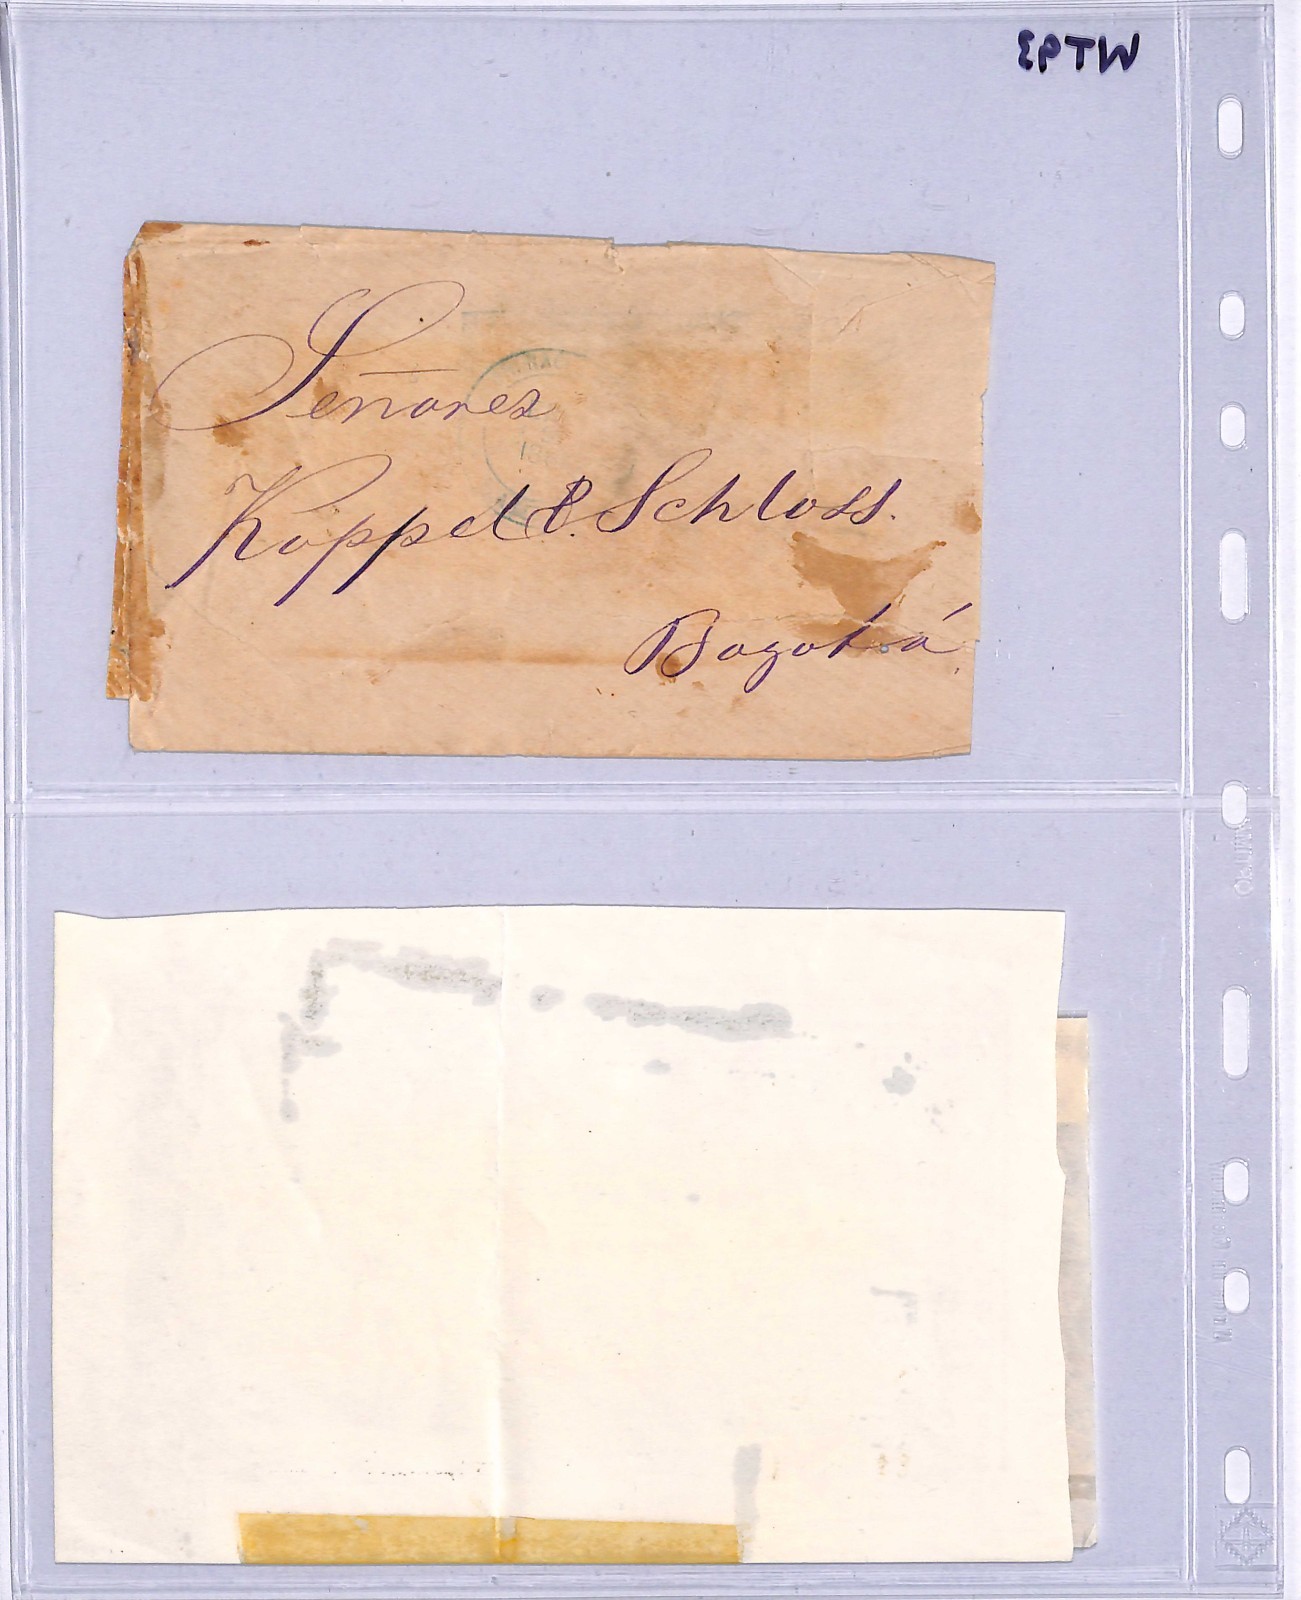 WT93
Señores
Koppel & Schloss.
Bogotá.